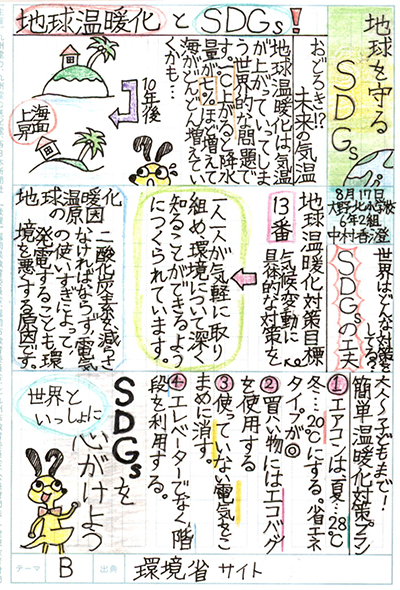 地球を守る
SDGs
8月17日
大野北小学校
6年2組
中村香澄
地球温暖化とSDGs!
おどろき!?
未来の気温
地球温暖化は、気温
が上がっていってしま
う世界的な問題で
す。℃上がると降水
量が%ほど増えて
海がどんどん増えてい
くかも…
10年後
海面
上昇
世界はどんな対策を
してる?
SDGsの工夫
地球温暖化対策目標
13番
気候変動に
具体的な対策を
一人一人が気軽に取り
組め、環境について深く
知ることができるよう
につくられています。
地球の温暖化
の原因
二酸化炭素を減らさ
なければならず、電気
の使いすぎによって
発電することも、環
境を悪くする原因です。
大人~子どもまで!
簡単温暖化対策プラン
①エアコンは、夏…28℃
冬…20℃にする。省エネ
タイプが◎
②買い物にはエコバッグ
を使用する
③使っていない電気をこ
まめに消す。
④エレベーターでなく、階
段を利用する。
SDGsを
心がけよう
世界と
いっしょに
テーマ
B
出典
環境省サイト